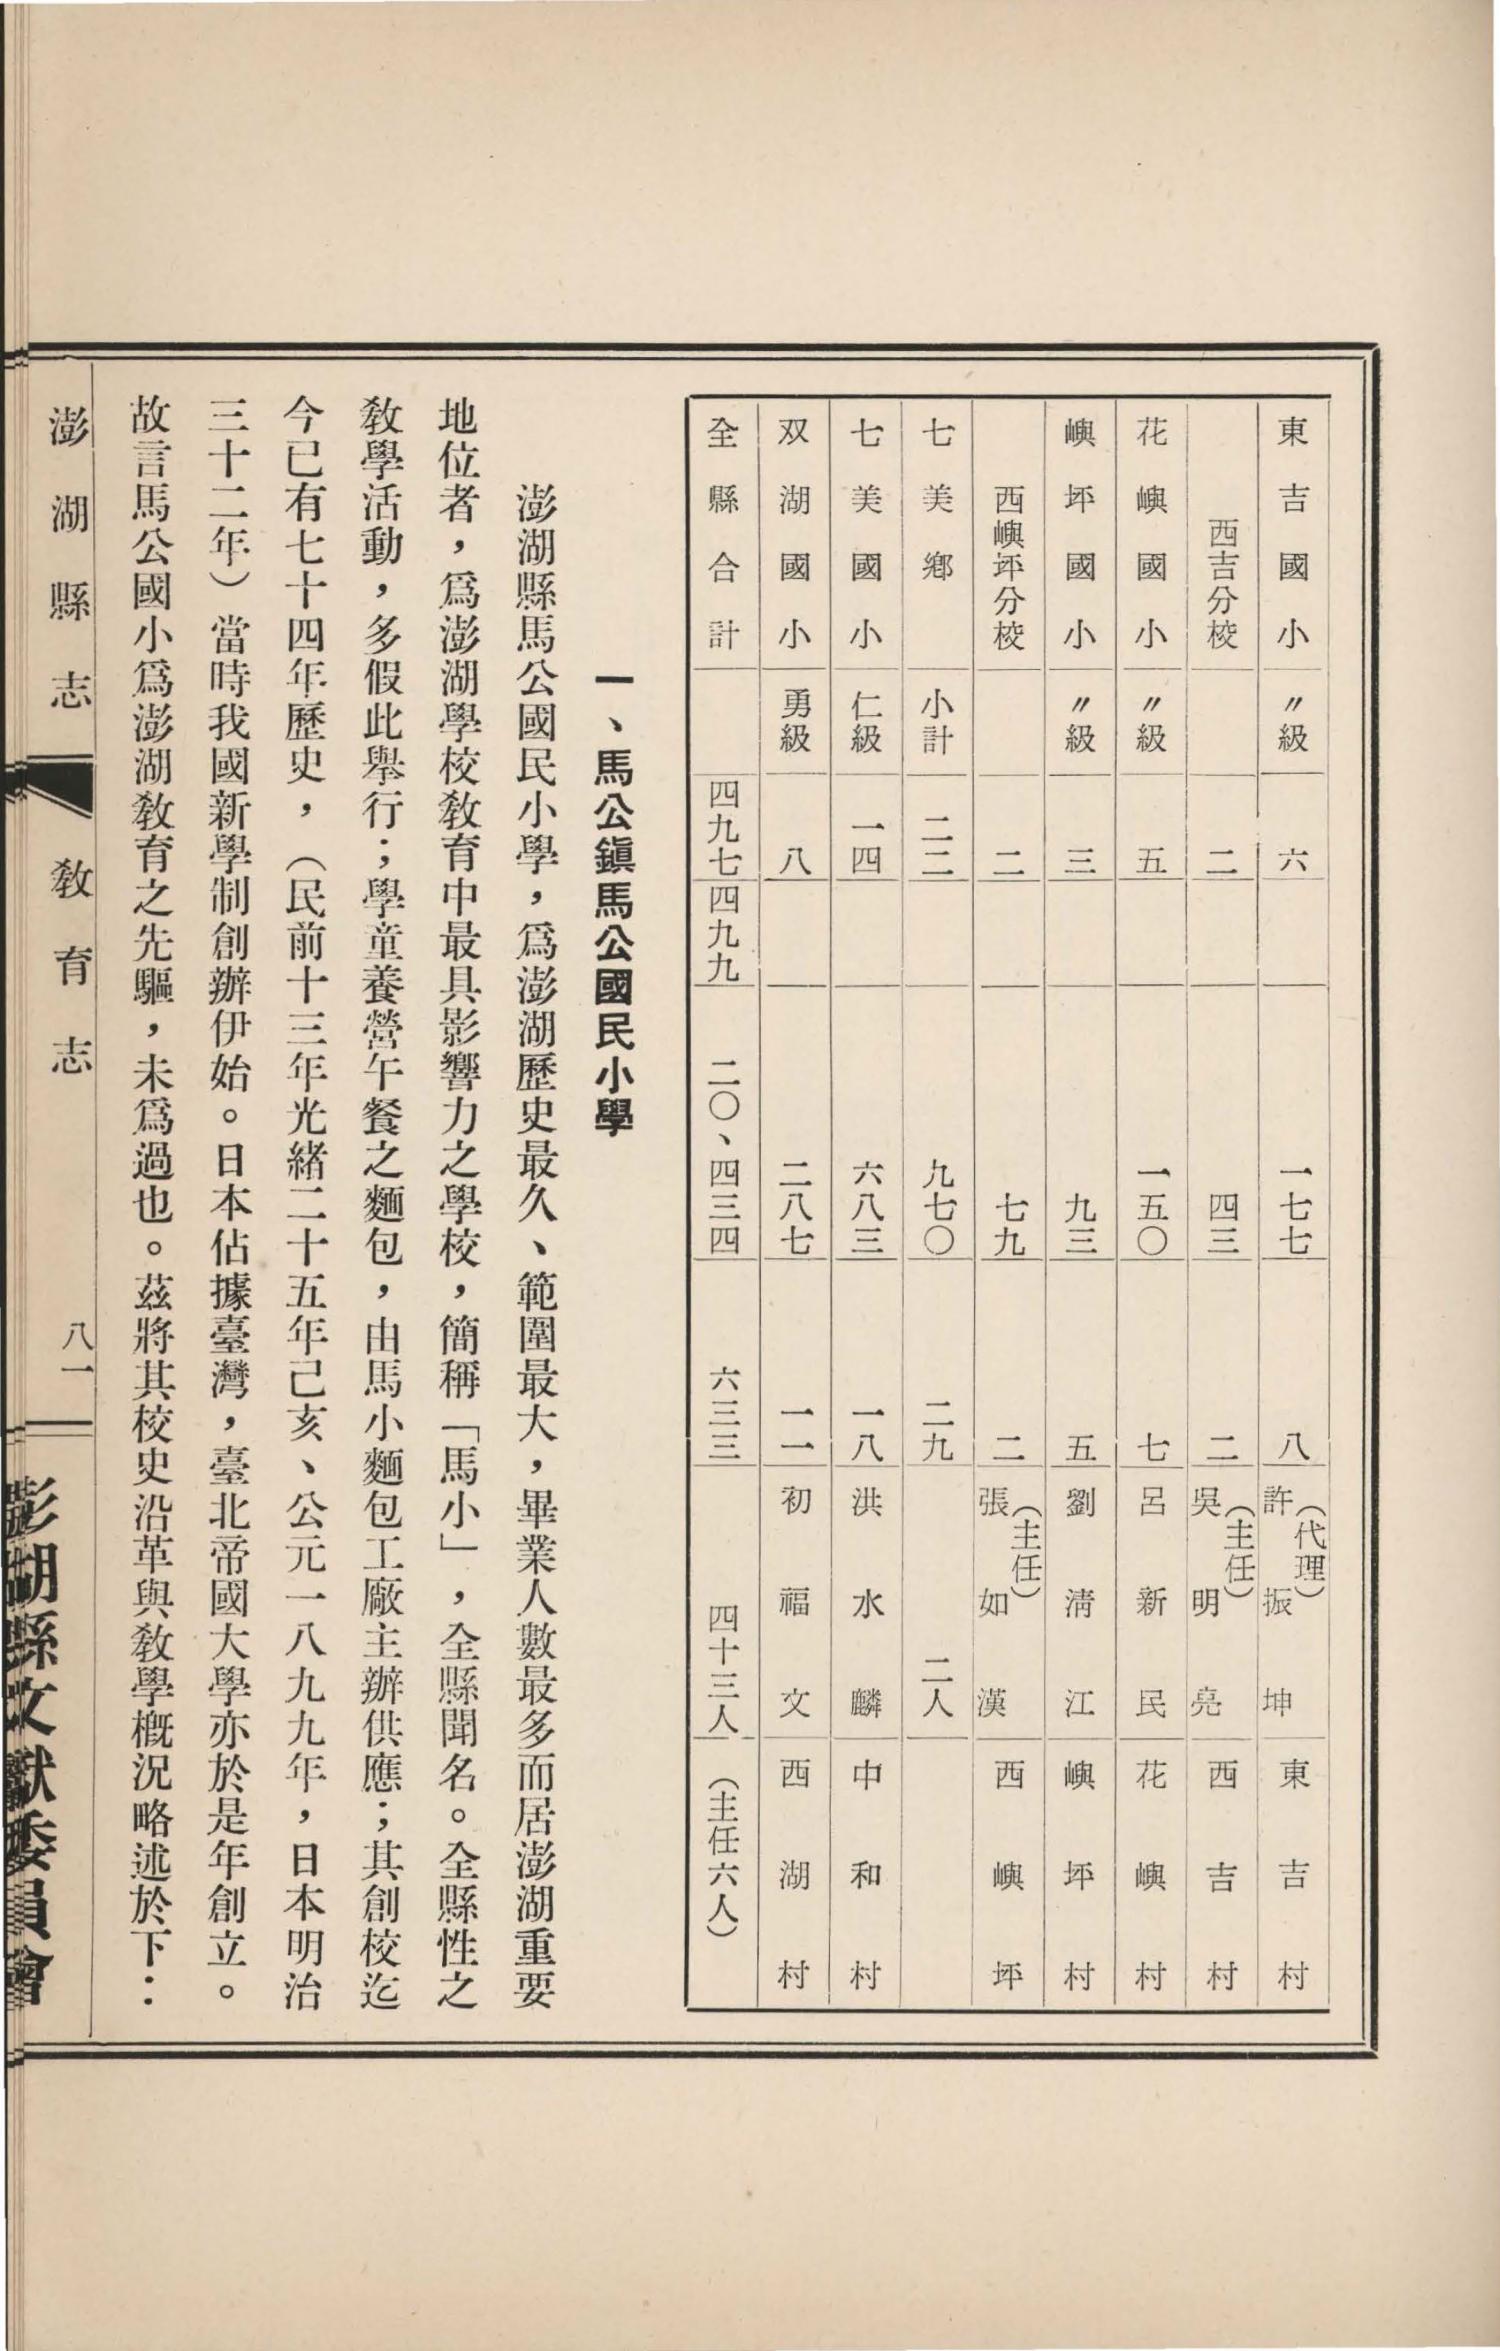 東吉國小 〃級 六 一七七 八 許振坤(代理) 東吉村
西吉分校 二 四三 二 吳明亮(主任) 西吉村
花嶼國小 〃級 五 一五〇 七 呂新民 花嶼村
嶼坪國小 〃級 三 九三 五 劉清江 嶼坪村
西嶼坪分校 二 七九 二 張如漢(主任) 西嶼坪
七美鄉 小計 二二 九七〇 二九 二人
七美國小 仁級 一四 六八三 一八 洪水麟 中和村
双湖國小 勇級 八 二八七 一一 初福文 西湖村
全縣合計 四九七 四九九 二〇、四三四 六三三 四十三人 (主任六人)
一、馬公鎭馬公國民小學
澎湖縣馬公國民小學,爲澎湖歷史最久、範圍最大,畢業人數最多而居澎湖重要
地位者,爲澎湖學校敎育中最具影響力之學校,簡稱「馬小」,全縣聞名。全縣性之
敎學活動,多假此舉行;學童養營午餐之麵包,由馬小麵包工廠主辦供應;其創校迄
今已有七十四年歷史,(民前十三年光緖二十五年己亥、公元一八九九年,日本明治
三十二年)當時我國新學制創辦伊始。日本佔據臺灣,臺北帝國大學亦於是年創立。
故言馬公國小爲澎湖敎育之先驅,未爲過也。茲將其校史沿革與敎學槪況略述於下:
澎湖縣志 敎育志 八一
澎湖縣文獻委員會